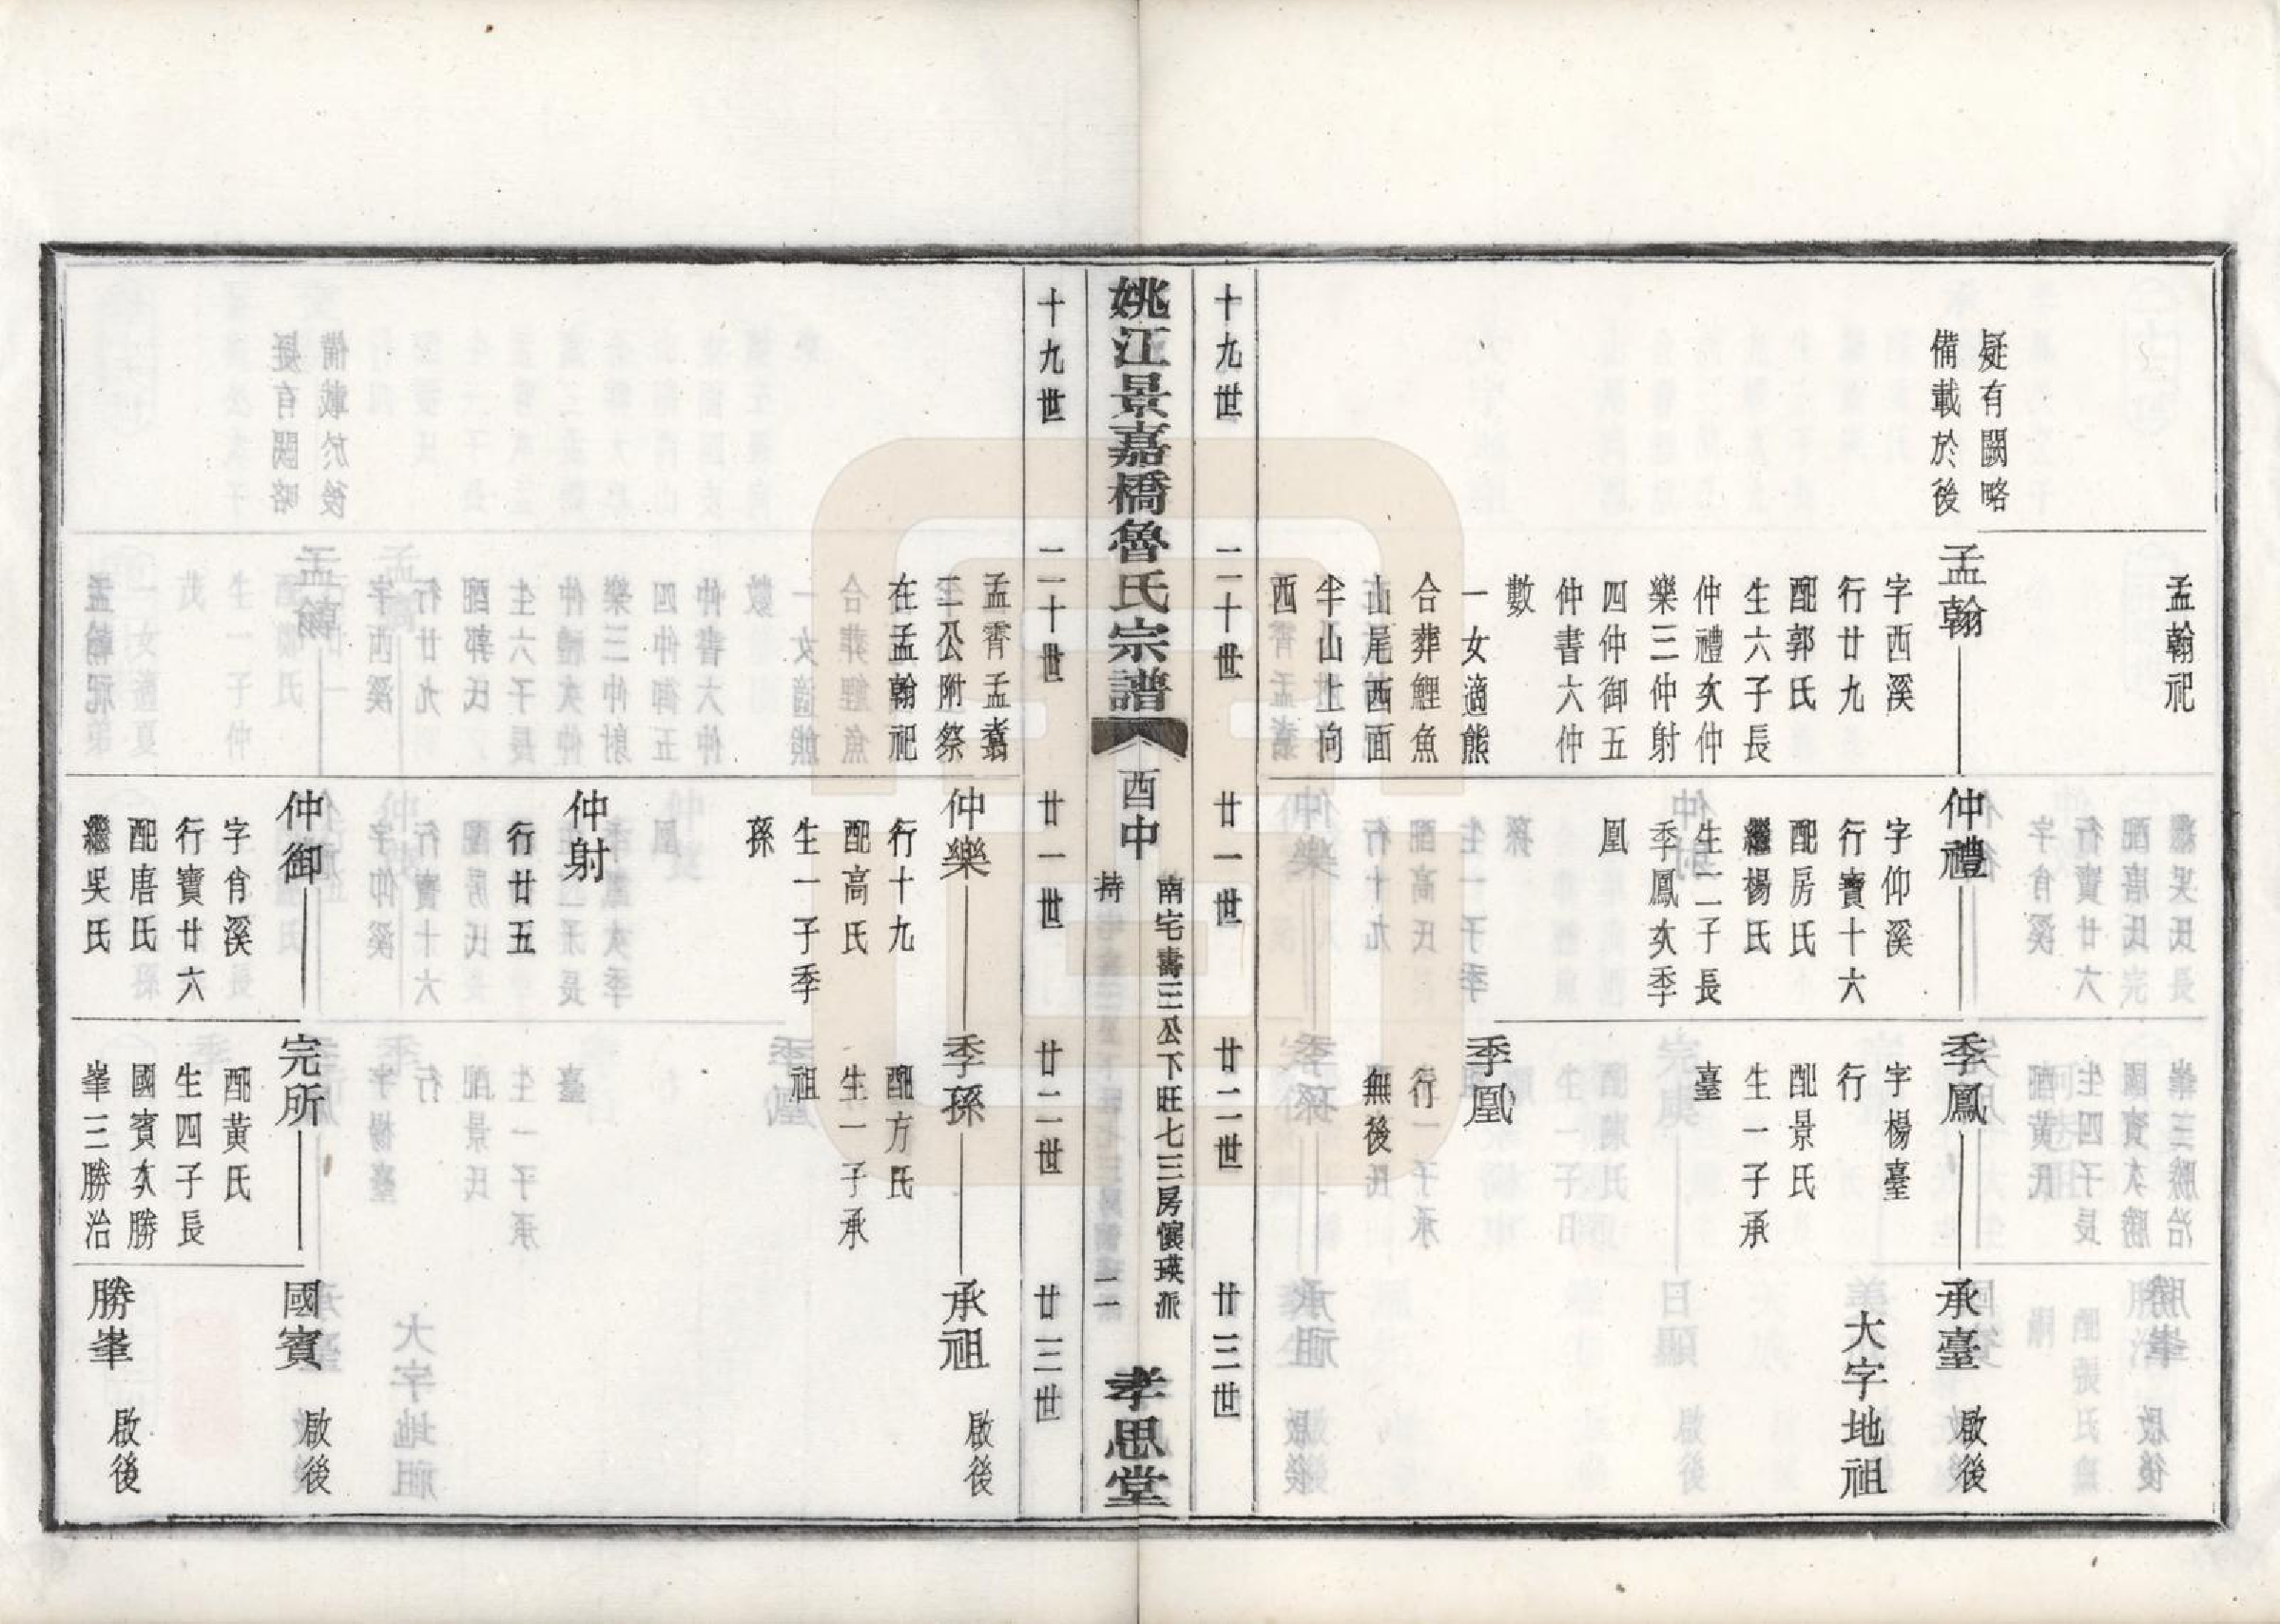 疑有闕略
備載於後
孟翰祀
孟翰
字西溪
行廿九
配郭氏
生六子長
仲禮次仲
樂三仲射
四仲御五
仲書六仲
數
一女適熊
合葬鯉魚
山尾西面
半山上向
西
仲禮
字仰溪
行寶十六
配房氏
繼楊氏
生二子長
季鳳次季
凰
季鳳
字楊臺
行
配景氏
生一子承
臺
季凰
行
無後
承臺 啟後
大字地祖
十九世
二十世
廿一世
廿二世
廿三世
姚江景嘉橋魯氏宗譜
酉中
南宅壽三公下旺七三房儀瑛派
持
二一
孝思堂
十九世
二十世
廿一世
廿二世
廿三世
孟霄孟翥
二公附祭
在孟翰祀
仲樂
行十九
配高氏
生一子季
孫
仲射
行廿五
仲御
字肖溪
行寶廿六
配唐氏
繼吳氏
季孫
配方氏
生一子承
祖
完所
配黃氏
生四子長
國賓次勝
峯三勝治
承祖 啟後
國賓 啟後
勝峯 啟後